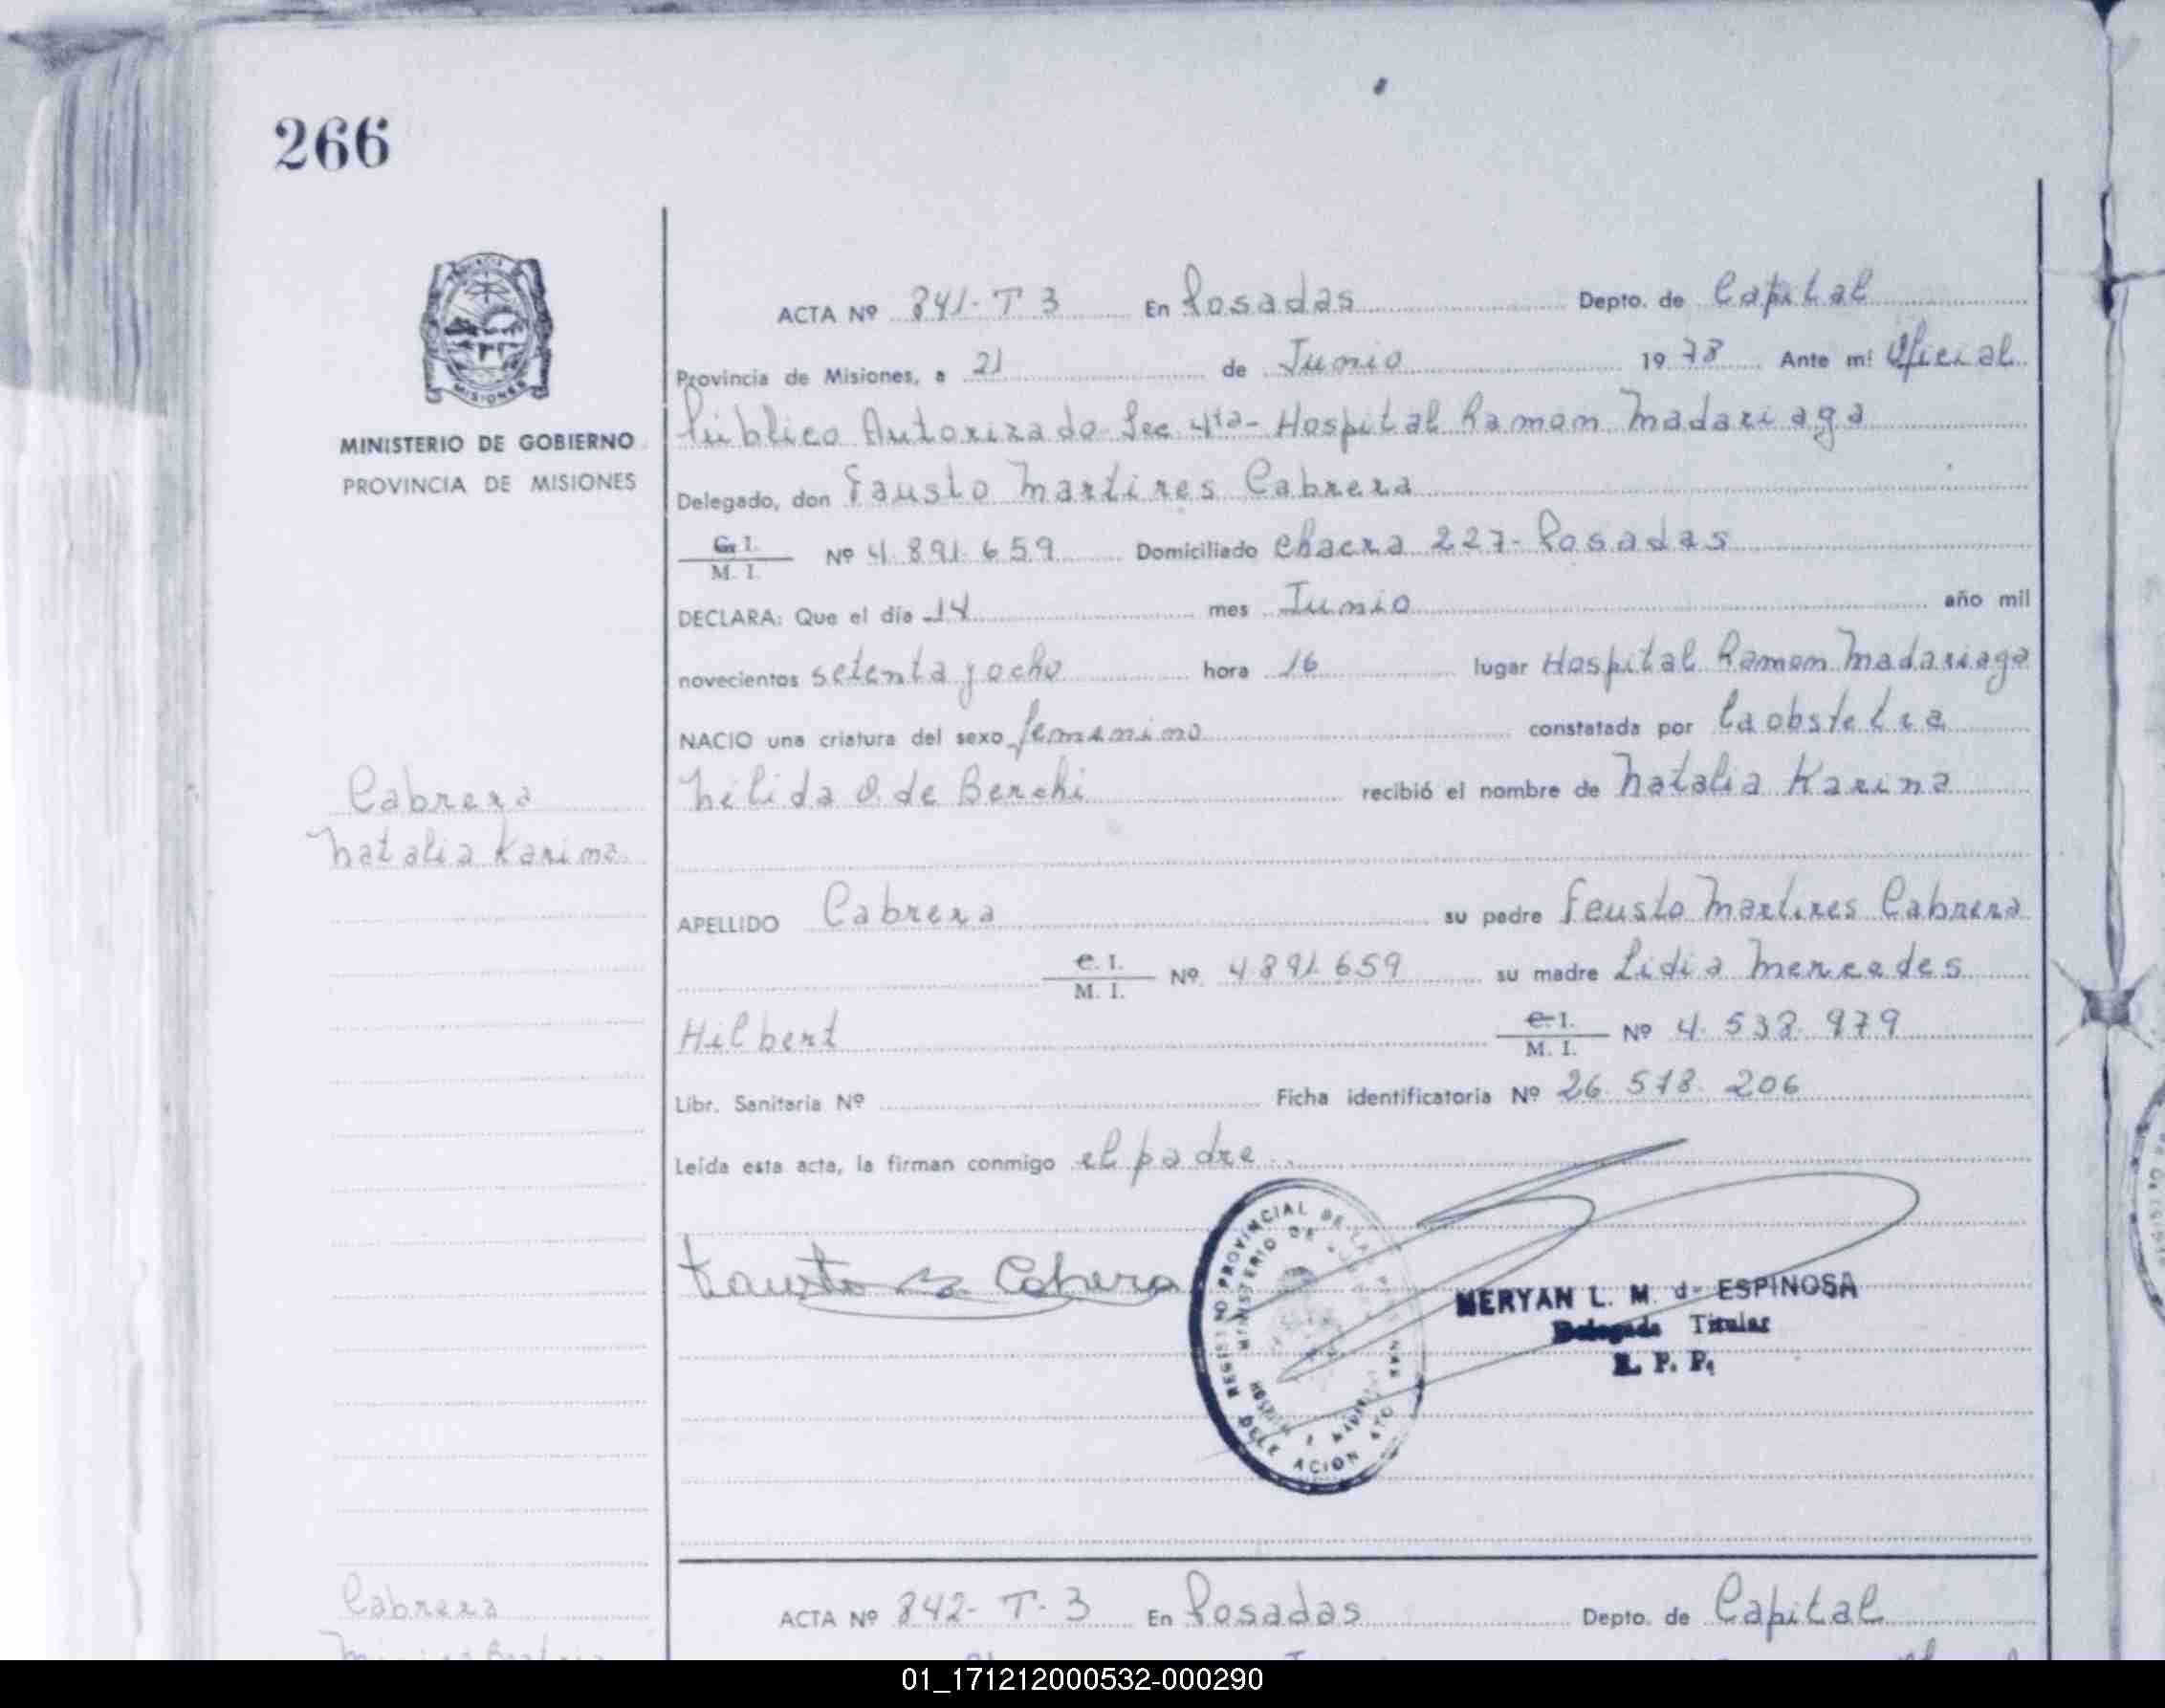 266
MINISTERIO DE GOBIERNO
PROVINCIA DE MISIONES
ACTA Nº 841-T 3 En Posadas Depto. de Capital
Provincia de Misiones, a 21 de Junio 1978 Ante mí Oficial
Público Autorizado Sec 4ta- Hospital Ramon Madariaga
Delegado, don Fausto Martires Cabrera
C. I.
M. I.
Nº 4.891.659 Domiciliado Chacra 227- Posadas
DECLARA: Que el día 14 mes Junio año mil
novecientos setenta y ocho hora 16 lugar Hospital Ramon Madariaga
NACIO una criatura del sexo femenino constatada por la obstetra
Nélida O. de Berchi recibió el nombre de Natalia Karina
Cabrera
Natalia Karina
APELLIDO Cabrera su padre Fausto Martires Cabrera
C. I.
M. I.
Nº 4.891.659 su madre Lidia Mercedes
Hilbert
C. I.
M. I.
Nº 4.532.979
Libr. Sanitaria Nº Ficha identificatoria Nº 26.578.206
Leída esta acta, la firman conmigo el padre..
Fausto M Cabrera
REGISTRO PROVINCIAL DE LAS
MINISTERIO DE
HOSPITAL R MADARIAGA
DELEGACION
MERYAN L. M. de ESPINOSA
Delegada Titular
R. P. P.
Cabrera
ACTA Nº 842- T- 3 En Posadas Depto. de Capital
01_171212000532-000290